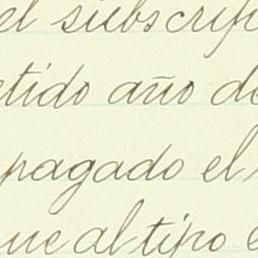 el subscrip
etido año de
pagado el
que al tipo e